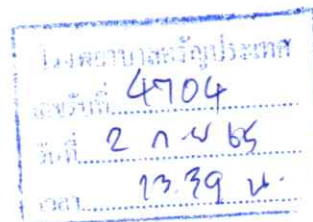 โรงพยาบาลอรัญประเทศ
เลขรับที่ 4704
วันที่ 2 ก.ย 65
เวลา 13.39 น.